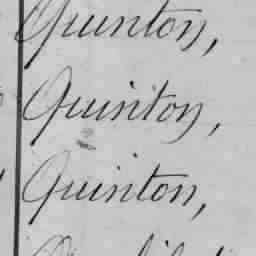 Quinton,
Quinton,
Quinton,